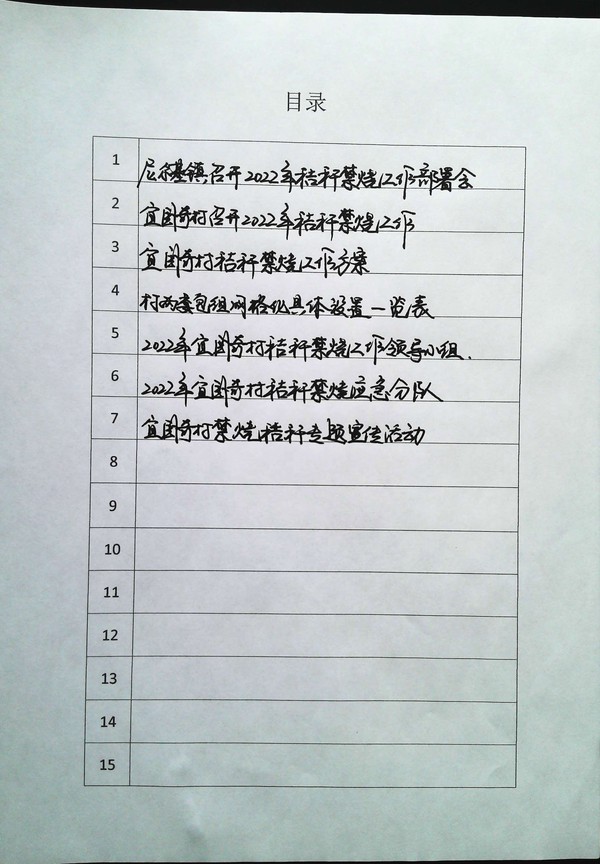 目录
1 尼尔基镇召开2022年秸秆禁烧工作部署会
2 宜图奇村召开2022年秸秆禁烧工作
3 宜图奇村秸秆禁烧工作方案
4 村两委包组网格化具体设置一览表
5 2022年宜图奇村秸秆禁烧工作领导小组.
6 2022年宜图奇村秸秆禁烧应急分队
7 宜图奇村禁烧秸秆专题宣传活动
8
9
10
11
12
13
14
15